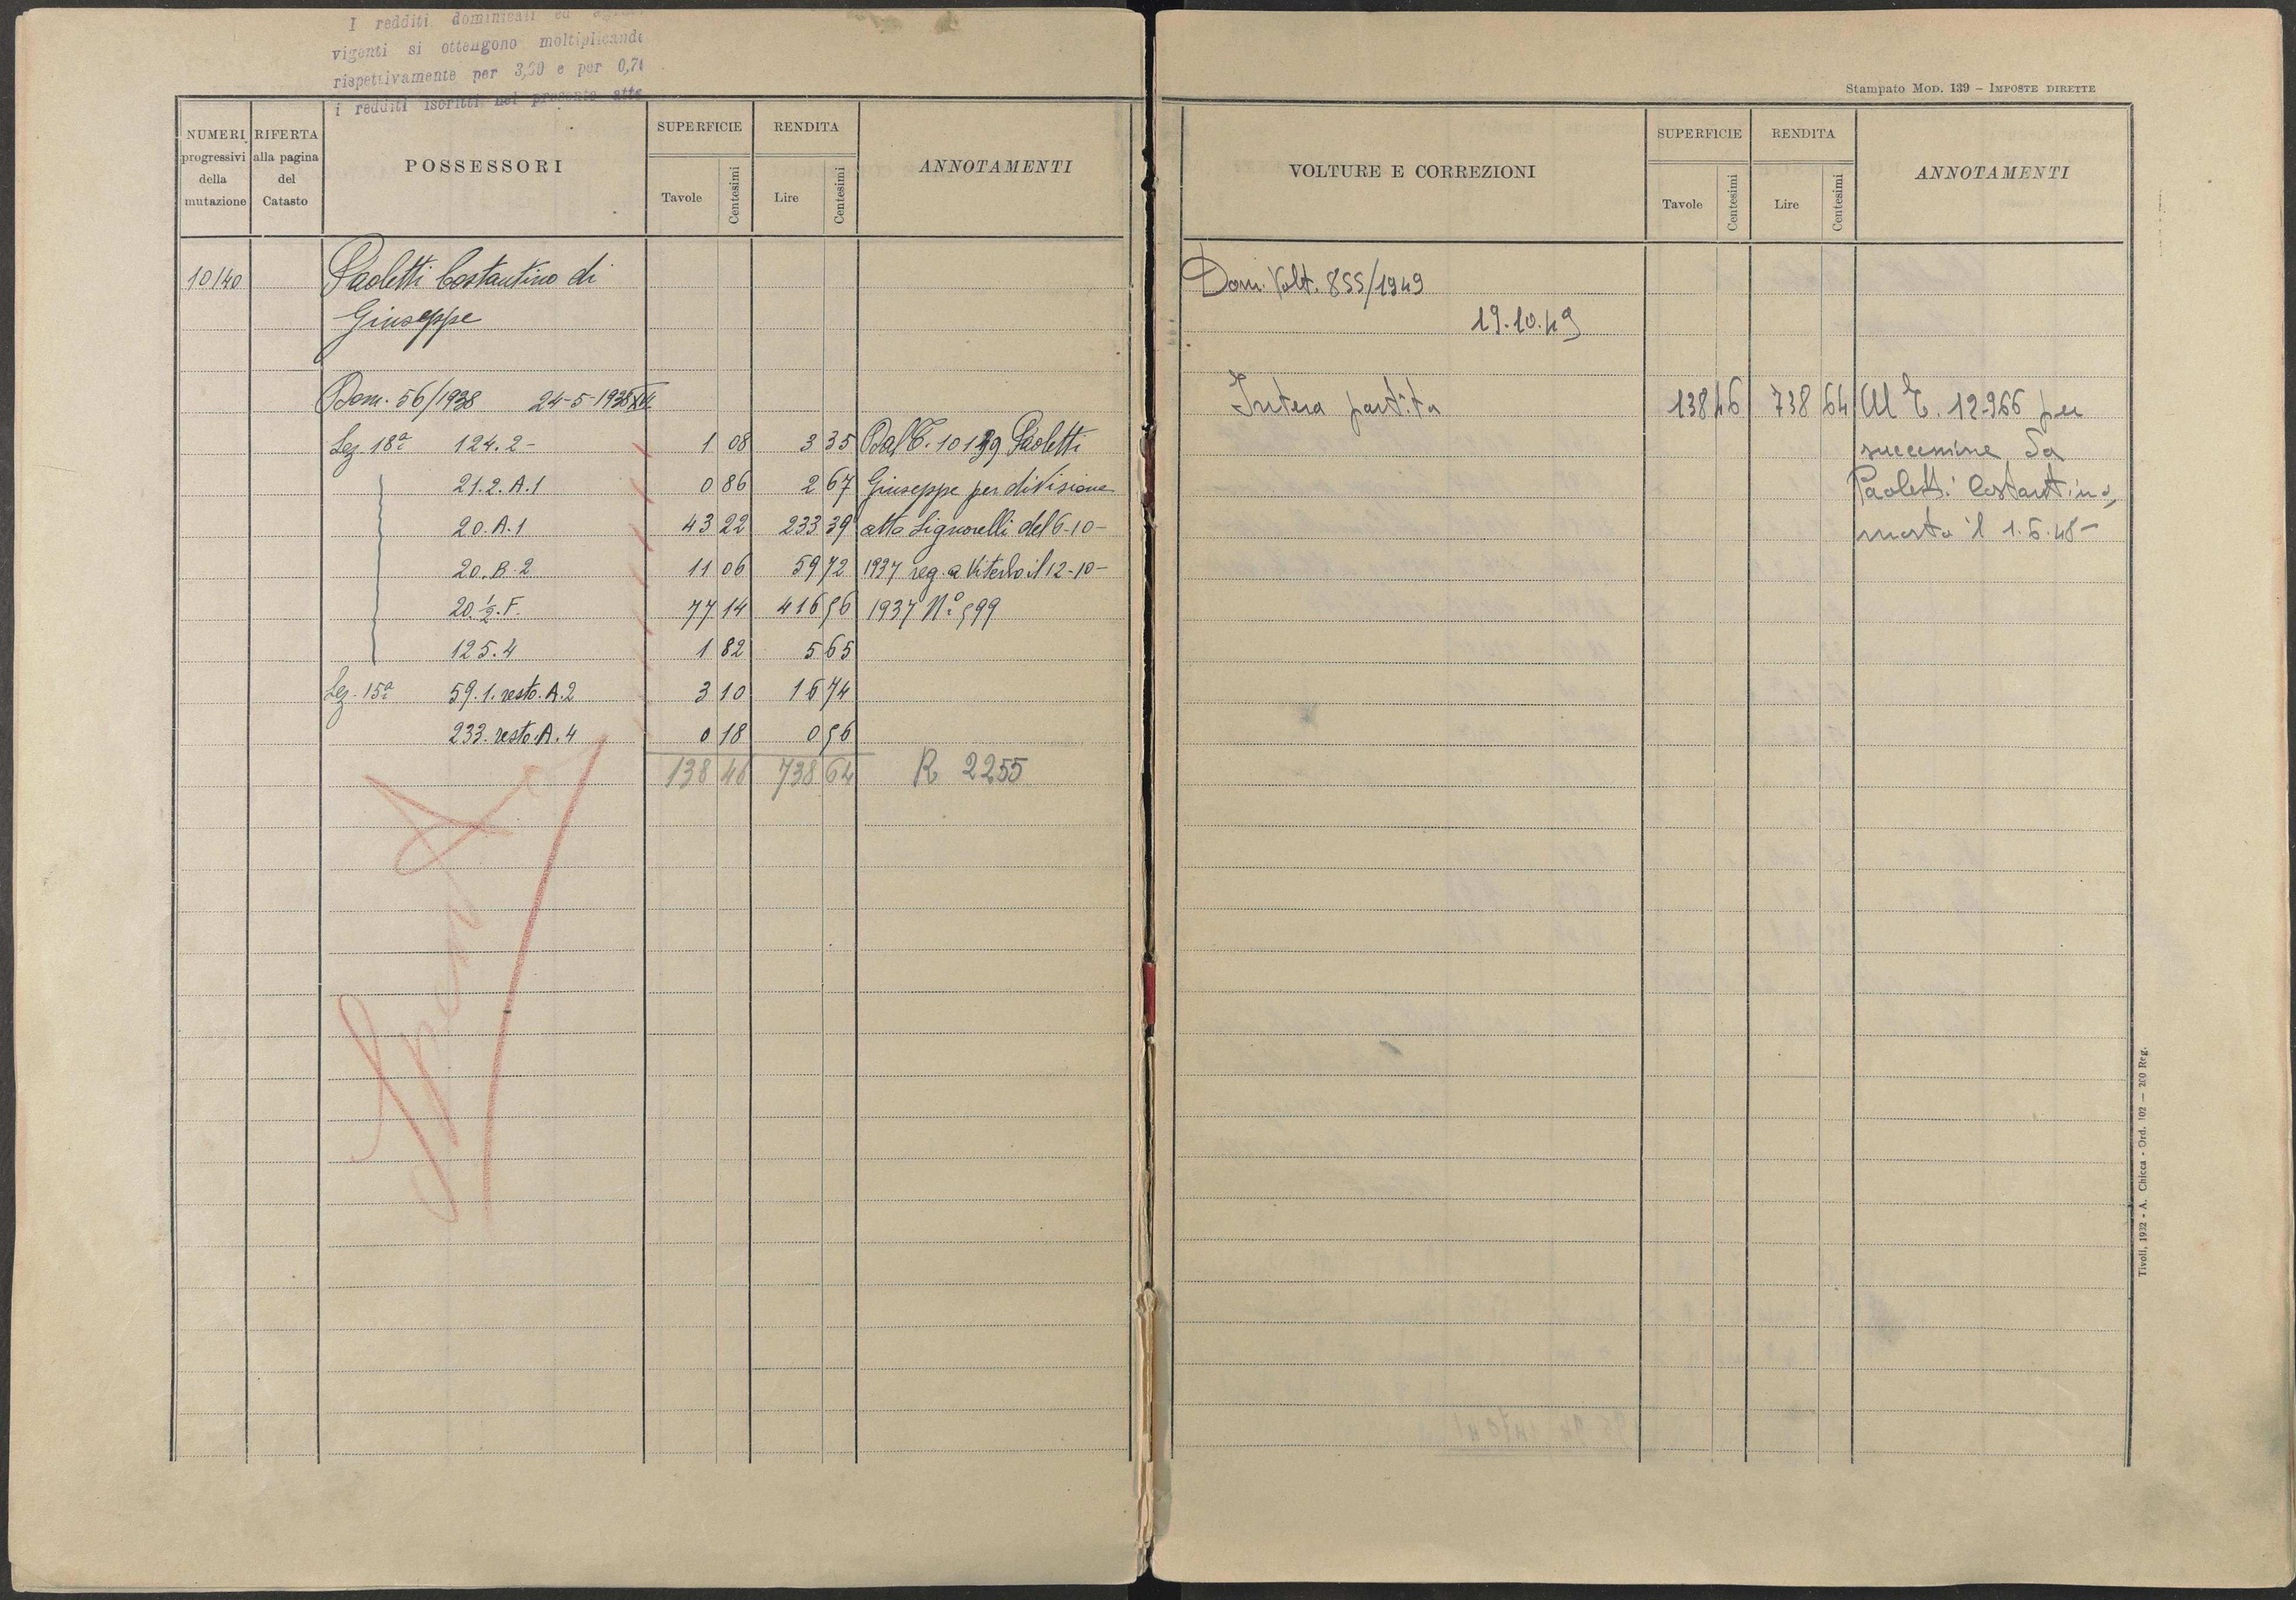 I redditi dominicali ed
vigenti si ottengono moltiplicando
rispettivamente per 3,50 e per 0,70
i redditi iscritti nel presente atto
NUMERI progressivi della mutazione
RIFERTA alla pagina del Catasto
POSSESSORI
SUPERFICIE
Tavole
Centesimi
RENDITA
Lire
Centesimi
ANNOTAMENTI
10140 Paoletti Costantino di
Giuseppe
Dom. 56/1938 24-5-1938 XVI
Sez. 18ª 124.2- 1 08 3 35 Dal T. 10139 Paoletti
21.2.A.1 0 86 2 67 Giuseppe per divisione
20.A.1 43 22 233 39 atto Signorelli del 6-10-
20.B.2 11 06 59 72 1937 reg. a Viterbo il 12-10-
20.½.F. 77 14 416 56 1937 N.º 599
125.4 1 82 5 65
Sez. 15ª 59.1.resto.A.2 3 10 16 74
233.resto.A.4 0 18 0 56
138 46 738 64 R 2255
Spenta
Stampato Mod. 139 – Imposte dirette
VOLTURE E CORREZIONI
SUPERFICIE
Tavole
Centesimi
RENDITA
Lire
Centesimi
ANNOTAMENTI
Dom. Volt. 855/1949
19.10.49
Intera partita 138 46 738 64 Al T. 12966 per
successione da
Paoletti Costantino,
morto il 1.6.48-
Tivoli, 1932 - A. Chicca - Ord. 102 — 200 Reg.